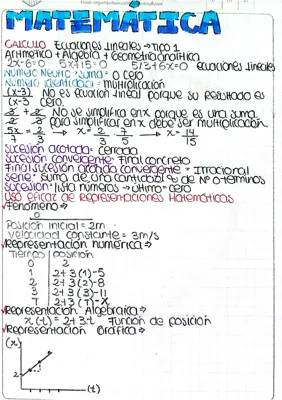 MATEMÁTICA
CALCULO Ecuaciones Lineales → TIPO 1
Aritmetica + Algebra + Geometria analitica
2x-6=0 5x+15=0 5/3+6x=0 ecuaciones lineales
Numero Neutro = suma = 0 cero
Numero identidad = multiplicación
(x-3) No es Ecuación lineal porque su Resultado es
(x-3 cero.
No se simplifica en x porque es una suma
para simplificar en x debe ser multiplicación
5x/2 = 2/3 → x = 2/3 7/5 → x = 14/15
Sucesión acotada = cerrada
Sucesión convergente = Final concreto
Final sucesión acotada convergente = Irracional
Serie = Suma de una cantidad "s" de Nº o terminos
Sucesión = lista números → último = cero
Uso eficaz de Representaciones Matemáticas
Fenómeno →
0
Posición inicial = 2m
velocidad constante = 3m/s
Representación numérica →
Tiempo posición
0 2
1 2+3(1)-5
2 2+3(2)-8
3 2+3(3)-11
T 2+3(T)-X
Representación Algebraica →
x(t) = 2+3·t Función de posición
Representación Gráfica →
(x)
2
(t)